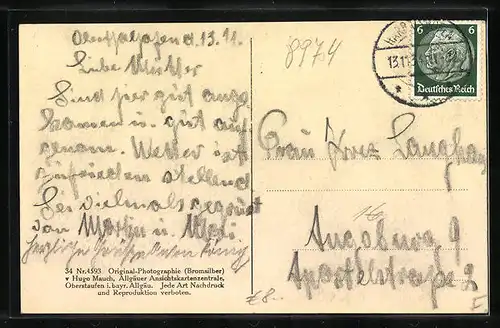 d. 13.11.
Liebe Mutter
Sind hier gut ange
kommen u. gut auf
genom. Wetter ist
zufrieden stellend
Sei vielmals gegrüsst
von Martin u.
Herzliche Grüße
34 Nr.4593 Original-Photographie (Bromsilber)
* Hugo Mauch, Allgäuer Ansichtskartenzentrale,
Oberstaufen i. bayr. Allgäu. Jede Art Nachdruck
und Reproduktion verboten.
8974
13.11.
6 6
Deutsches Reich
Frau
Augsburg 9
Apostelstraße 2
£8.-